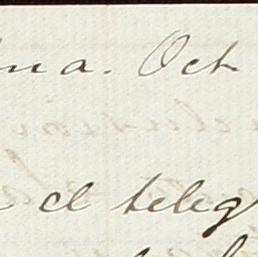 na. Oct
el teleg